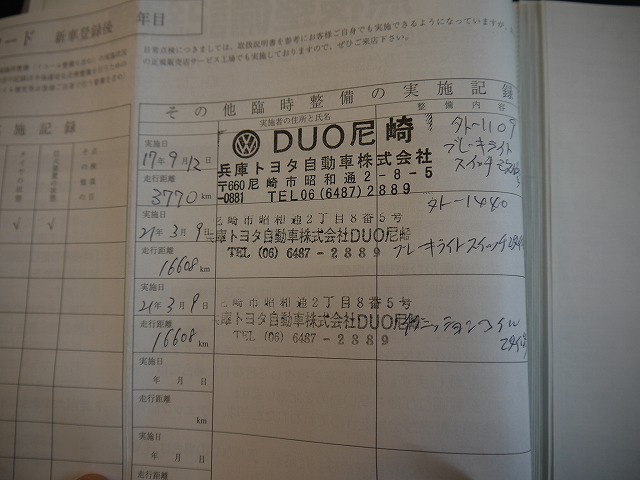 ード 新車登録後
年目
日常点検につきましては、取扱説明書を参考にお客様ご自身でも実施できるようになっていますが、
の正規販売店サービス工場でも実施しておりますので、ぜひご来店下さい。
施記録
その他臨時整備の実施記録
実施者の住所と氏名
整備内容
実施日
17年9月12日
走行距離
3770km
DUO尼崎
兵庫トヨタ自動車株式会社
〒660-0881 尼崎市昭和通2-8-5
TEL06(6487)2889
ブレーキライト
スイッチ
実施日
21年3月9日
走行距離
16608km
尼崎市昭和通2丁目8番5号
兵庫トヨタ自動車株式会社DUO尼崎
TEL (06) 6487-2889
ブレーキライトスイッチ
実施日
21年3月9日
走行距離
16608km
尼崎市昭和通2丁目8番5号
兵庫トヨタ自動車株式会社DUO尼崎
TEL (06) 6487-2889
イグニッションコイル
実施日
年 月 日
走行距離
km
実施日
年 月 日
走行距離